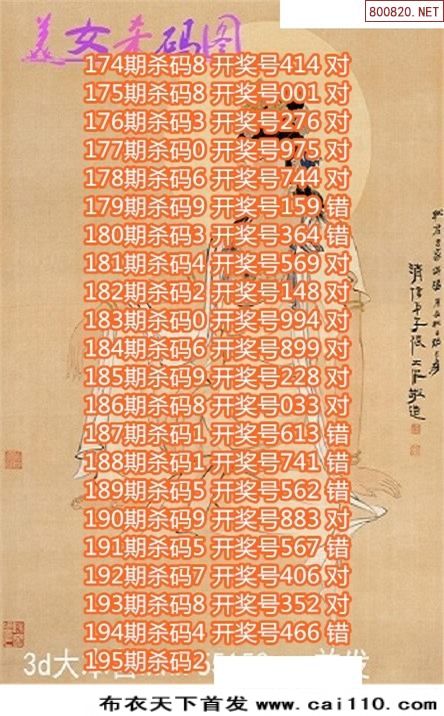 800820.NET
美女杀码图
174期杀码8 开奖号414 对
175期杀码8 开奖号001 对
176期杀码3 开奖号276 对
177期杀码0 开奖号975 对
178期杀码6 开奖号744 对
179期杀码9 开奖号159 错
180期杀码3 开奖号364 错
181期杀码4 开奖号569 对
182期杀码2 开奖号148 对
183期杀码0 开奖号994 对
184期杀码6 开奖号899 对
185期杀码9 开奖号228 对
186期杀码8 开奖号033 对
187期杀码1 开奖号613 错
188期杀码1 开奖号741 错
189期杀码5 开奖号562 错
190期杀码9 开奖号883 对
191期杀码5 开奖号567 错
192期杀码7 开奖号406 对
193期杀码8 开奖号352 对
194期杀码4 开奖号466 错
195期杀码2
3d大
布衣天下首发 www.cai110.com